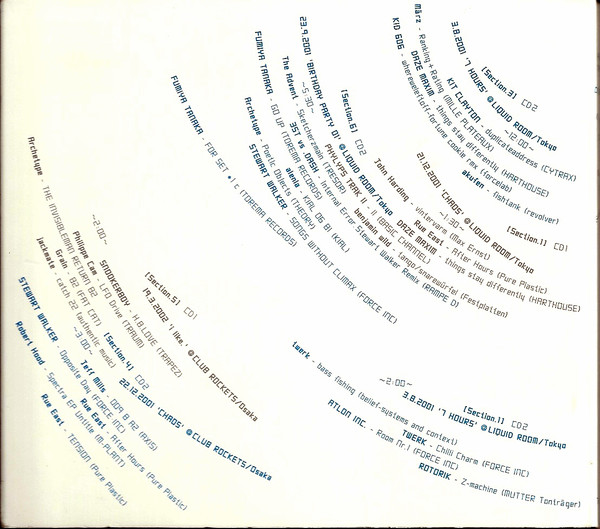 [Section.3] CD2
3.8.2001 '7 HOURS' @LIQUID ROOM/Tokyo
~12:00~
KIT CLAYTON - duplicateaddress (CYTRAX)
DAZE MAXIM - things stay differently (HARTHOUSE)
März - Ranking + Rating (MILLE PLATEAUX)
KID 606 - whereweleftoff-fortune cookie rmx (forcelab)
akuten - fishtank (revolver)
[Section.1] CD1
21.12.2001 'CHAOS' @LIQUID ROOM/Tokyo
~1:30~
Rue East - After Hours (Pure Plastic)
DAZE MAXIM - things stay differently (HARTHOUSE)
John Harding - vintervarm (Max Ernst)
[Section.6] CD2
23.9.2001 'BIRTHDAY PARTY D1' @LIQUID ROOM/Tokyo
~5:30~
PHYLYPS TRAK II - II (BASIC CHANNEL)
benjamin wild - tango/snarewürfel (Festplatten)
The Advent - Sketcherzmain (TRESOR)
3ST vs DASH - Internal Error Stewart Walker Remix (RAMPE D)
FUMIYA TANAKA - GO UP (TOREMA RECORDS)
alenia - KJAL 06 B1 (KJAL)
Archetype - Poetic Objects (THEORY)
STEWART WALKER - SONGS WITHOUT CLIMAX (FORCE INC)
FUMIYA TANAKA - FOR SET #1 c (TOREMA RECORDS)
[Section.5] CD1
19.3.2002 'I like.' @CLUB ROCKETS/Osaka
~2:00~
SNOOKERBOY - H B LOVE (TRAPEZ)
Philippe Cam - LFO Drive (TRAUM)
Archetype - THE INVISIBLEMAN RETURN A2
Grain - B2 (FAT CAT)
jackmate - catch 22 (authentic music)
[Section.4] CD2
22.12.2001 'CHAOS' @CLUB ROCKETS/Osaka
~3:00~
Jeff Mills - 009 B A2 (AXIS)
Rue East - After Hours (Pure Plastic)
STEWART WALKER - Opposite Day (FORCE INC)
Robert Hood - Spectra EP Untitle (M-PLANT)
Rue East - TENSION (Pure Plastic)
[Section.1] CD2
3.8.2001 '7 HOURS' @LIQUID ROOM/Tokyo
~2:00~
twerk - bass fishing (belief-systems and context)
TWERK - Chilli Charm (FORCE INC)
ATLON INC. - Room Nr.1 (FORCE INC)
ROTORIK - Z-machine (MUTTER Tonträger)